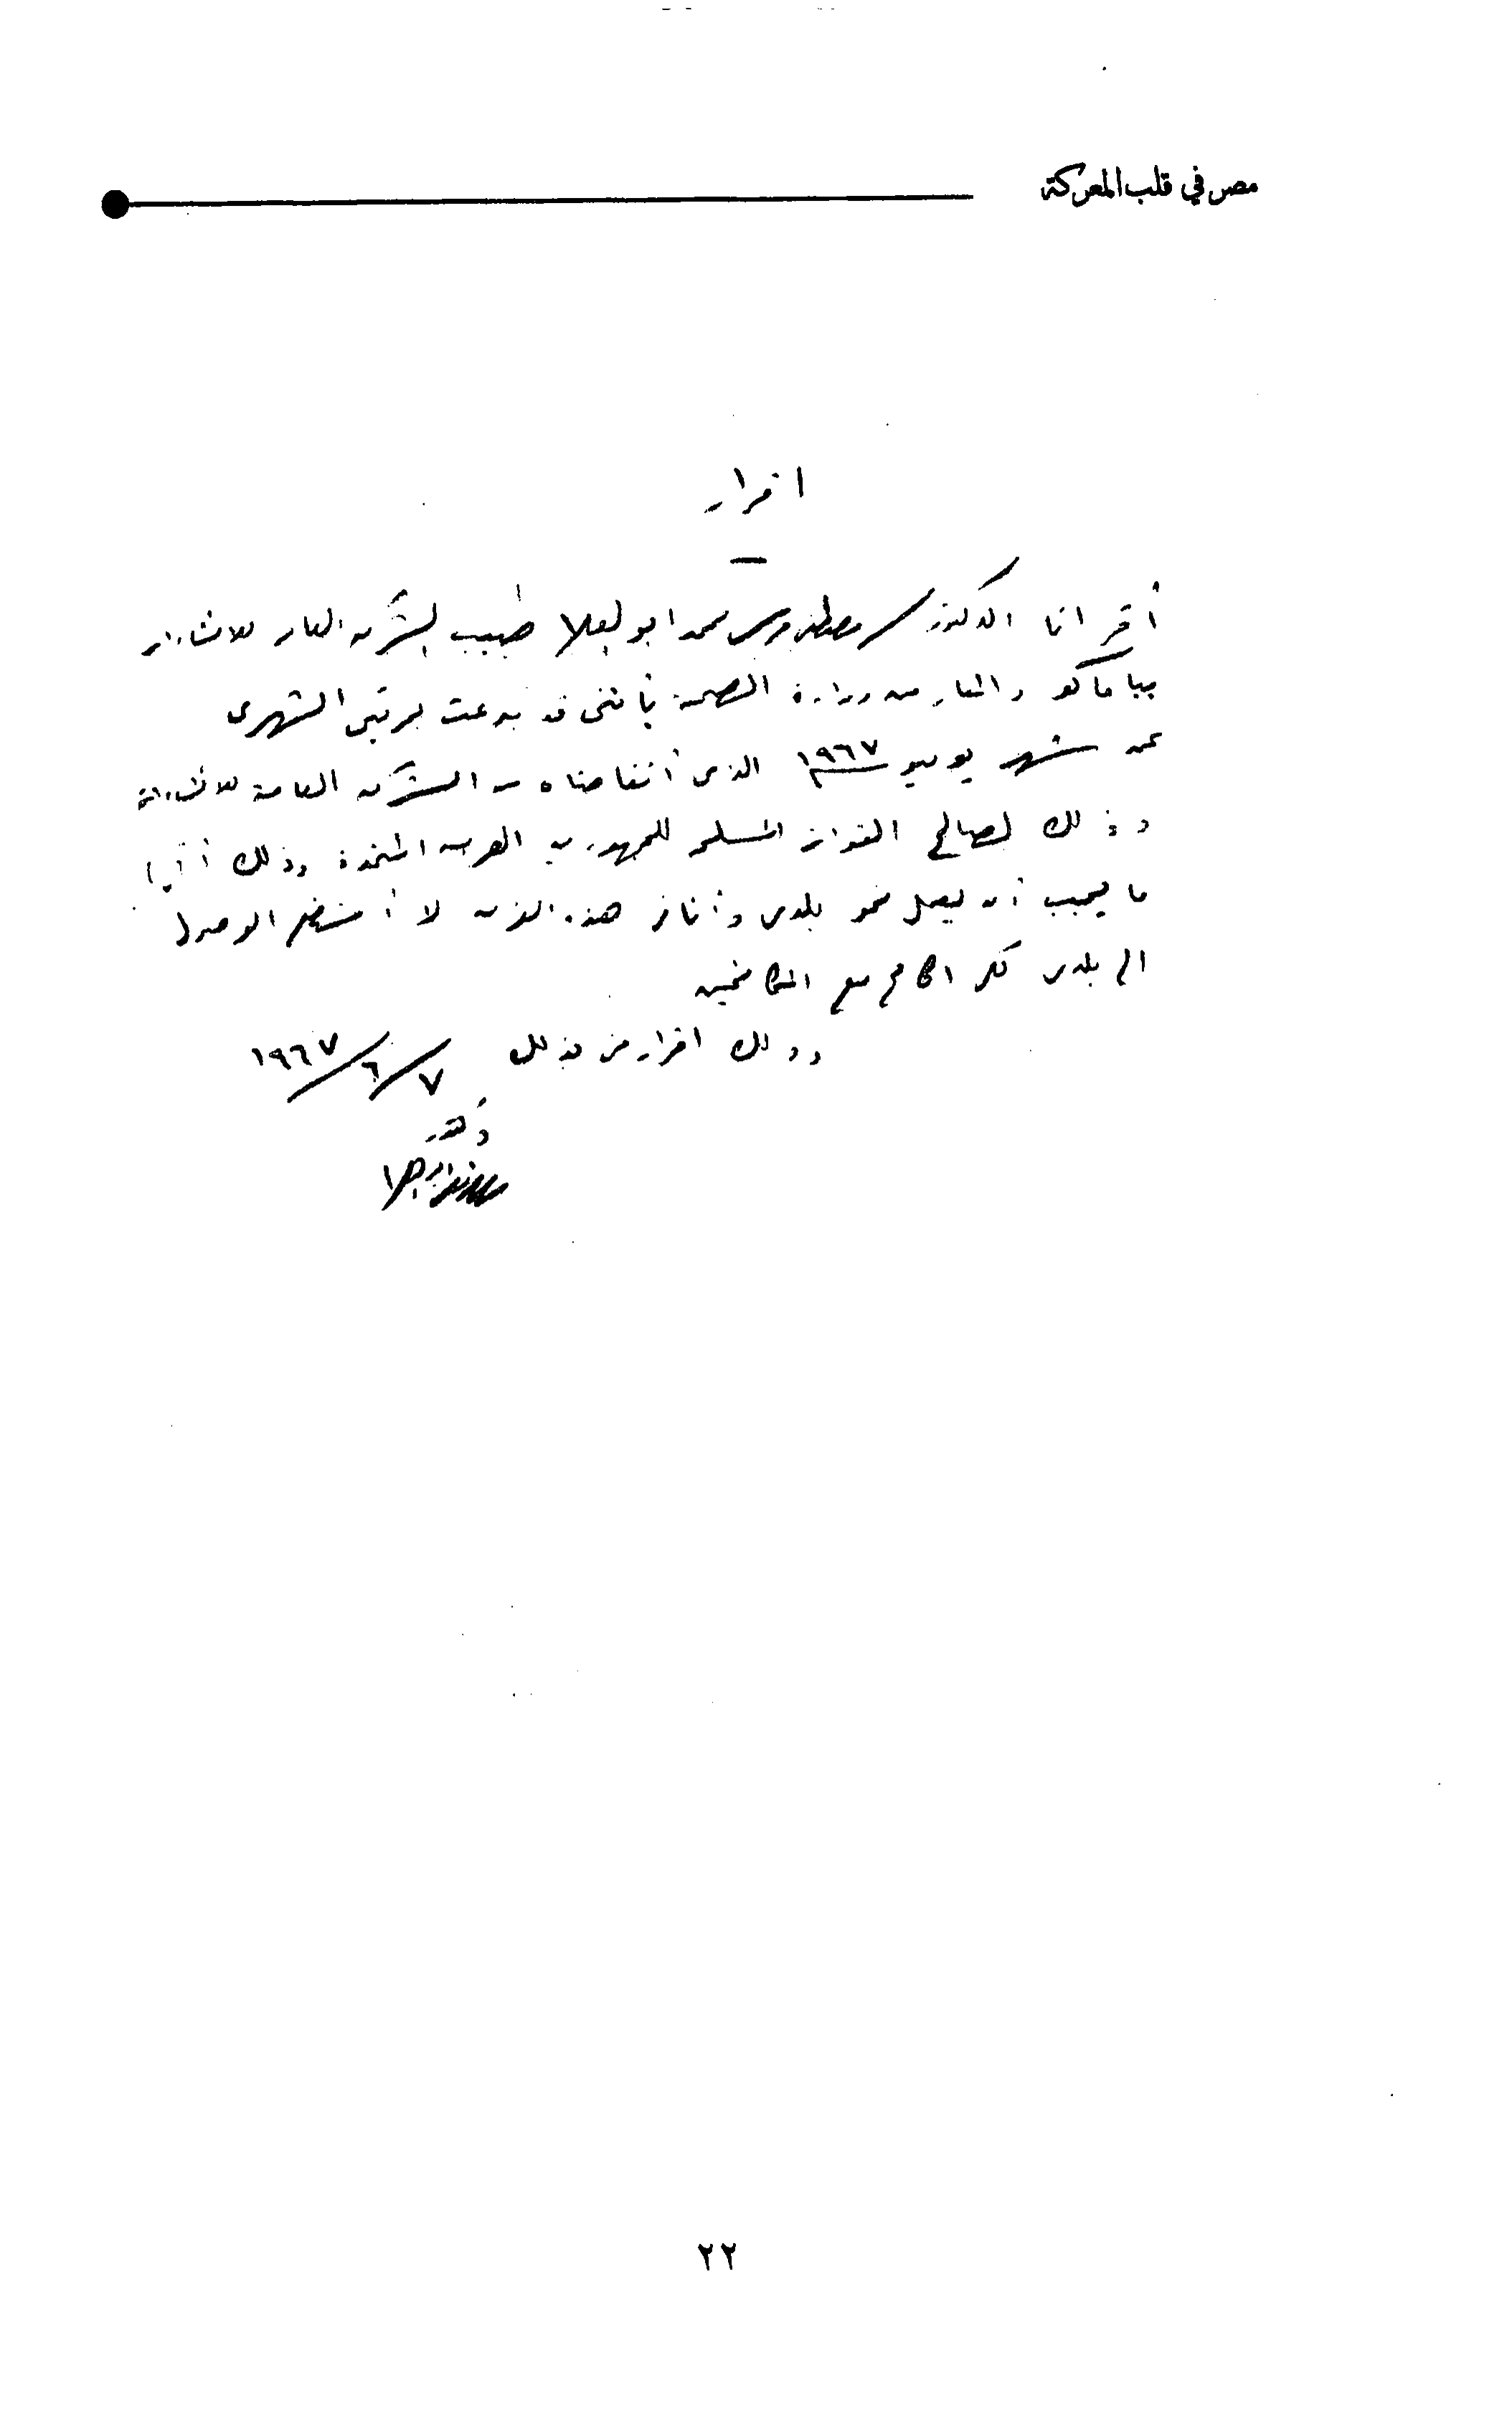 مصر في قلب المعركة
اقرار
أقر انا الدكتور مصطفى محمد ابو العلا طبيب الشركة العامة للانشاءات
بباماكو والمعار من وزارة الصحة بأننى قد تبرعت بمرتبى الشهرى
عن شهر يونيو ١٩٦٧ الذى أتقاضاه من الشركة العامة للانشاءات
وذلك لصالح القوات المسلحة للجمهورية العربية المتحدة وذلك أقل
ما يجب أن يعمل نحو بلدى وأنا فى هذه لا أستطيع الوصول
الى بلدى لكى اكافح مع المكافحين
وذلك اقرار منى بذلك ٧/٦/١٩٦٧
دكتور
٢٢